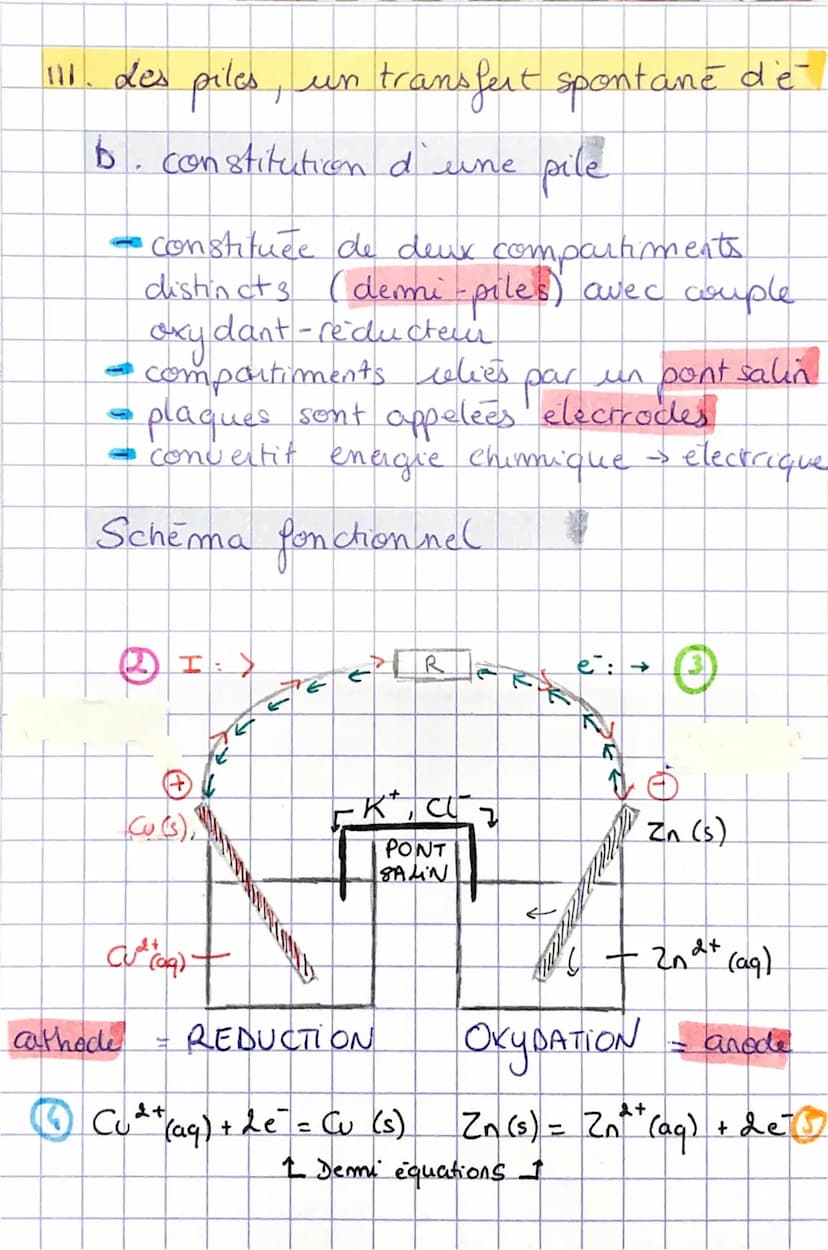 III. des piles, un transfert spontané d'e⁻
b. constitution d'une pile
- constituée de deux compartiments
distincts (demi-piles) avec couple
oxydant-réducteur
- compartiments reliés par un pont salin
- plaques sont appelées électrodes
- convertit énergie chimique → électrique
Schéma fonctionnel
② I : > R e⁻: → ③
+ -
K⁺, Cl⁻
Cu(s), PONT Zn (s)
SALIN
Cu²⁺(aq) Zn²⁺ (aq)
cathode = REDUCTION OXYDATION = anode
④ Cu²⁺(aq) + 2e⁻ = Cu (s) Zn (s) = Zn²⁺(aq) + 2e⁻ ⑤
↑ Demi équations ↑